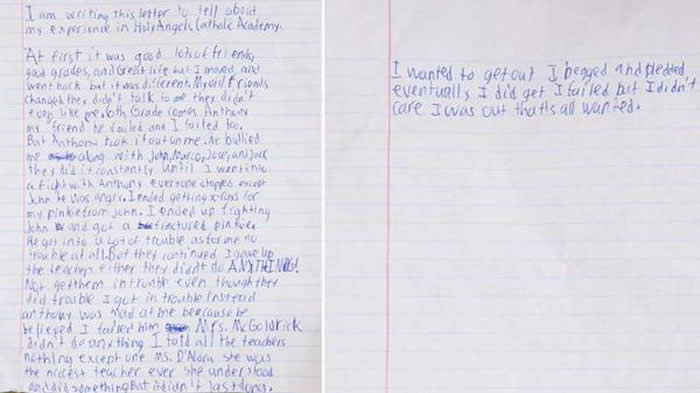 I am writing this letter to tell about
my experience in Holy Angels Catholic Academy.
At first it was good lots of friends,
good grades, and great life but I moved and
went back but it was different. My old friends
changed they didn't talk to me they didn't
even like me. 6th Grade comes Anthony
my friend he failed and I failed too.
But Anthony took it out on me. He bullied
me along with John, Marco, Jose, and Jack
they did it constantly until I went into
a fight with Anthony everyone stopped except
John he was angry. I ended getting x-rays for
my pinkie from John. I ended up fighting
John and got a fractured pinkie.
He got into a lot of trouble as for me no
trouble at all. But they continued I gave up
the teachers either they didn't do ANYTHING!
Not get them in trouble even though they
did trouble I got in trouble instead
anthony was mad at me because he
believed I failed him Mrs. McGoldrick
didn't do anything I told all the teachers
nothing except one Ms. D'Alora she was
the nicest teacher ever she understood
and did something But it didn't last long.
I wanted to get out I begged and pleded
eventually I did get I failed but I didn't
care I was out thats all wanted.